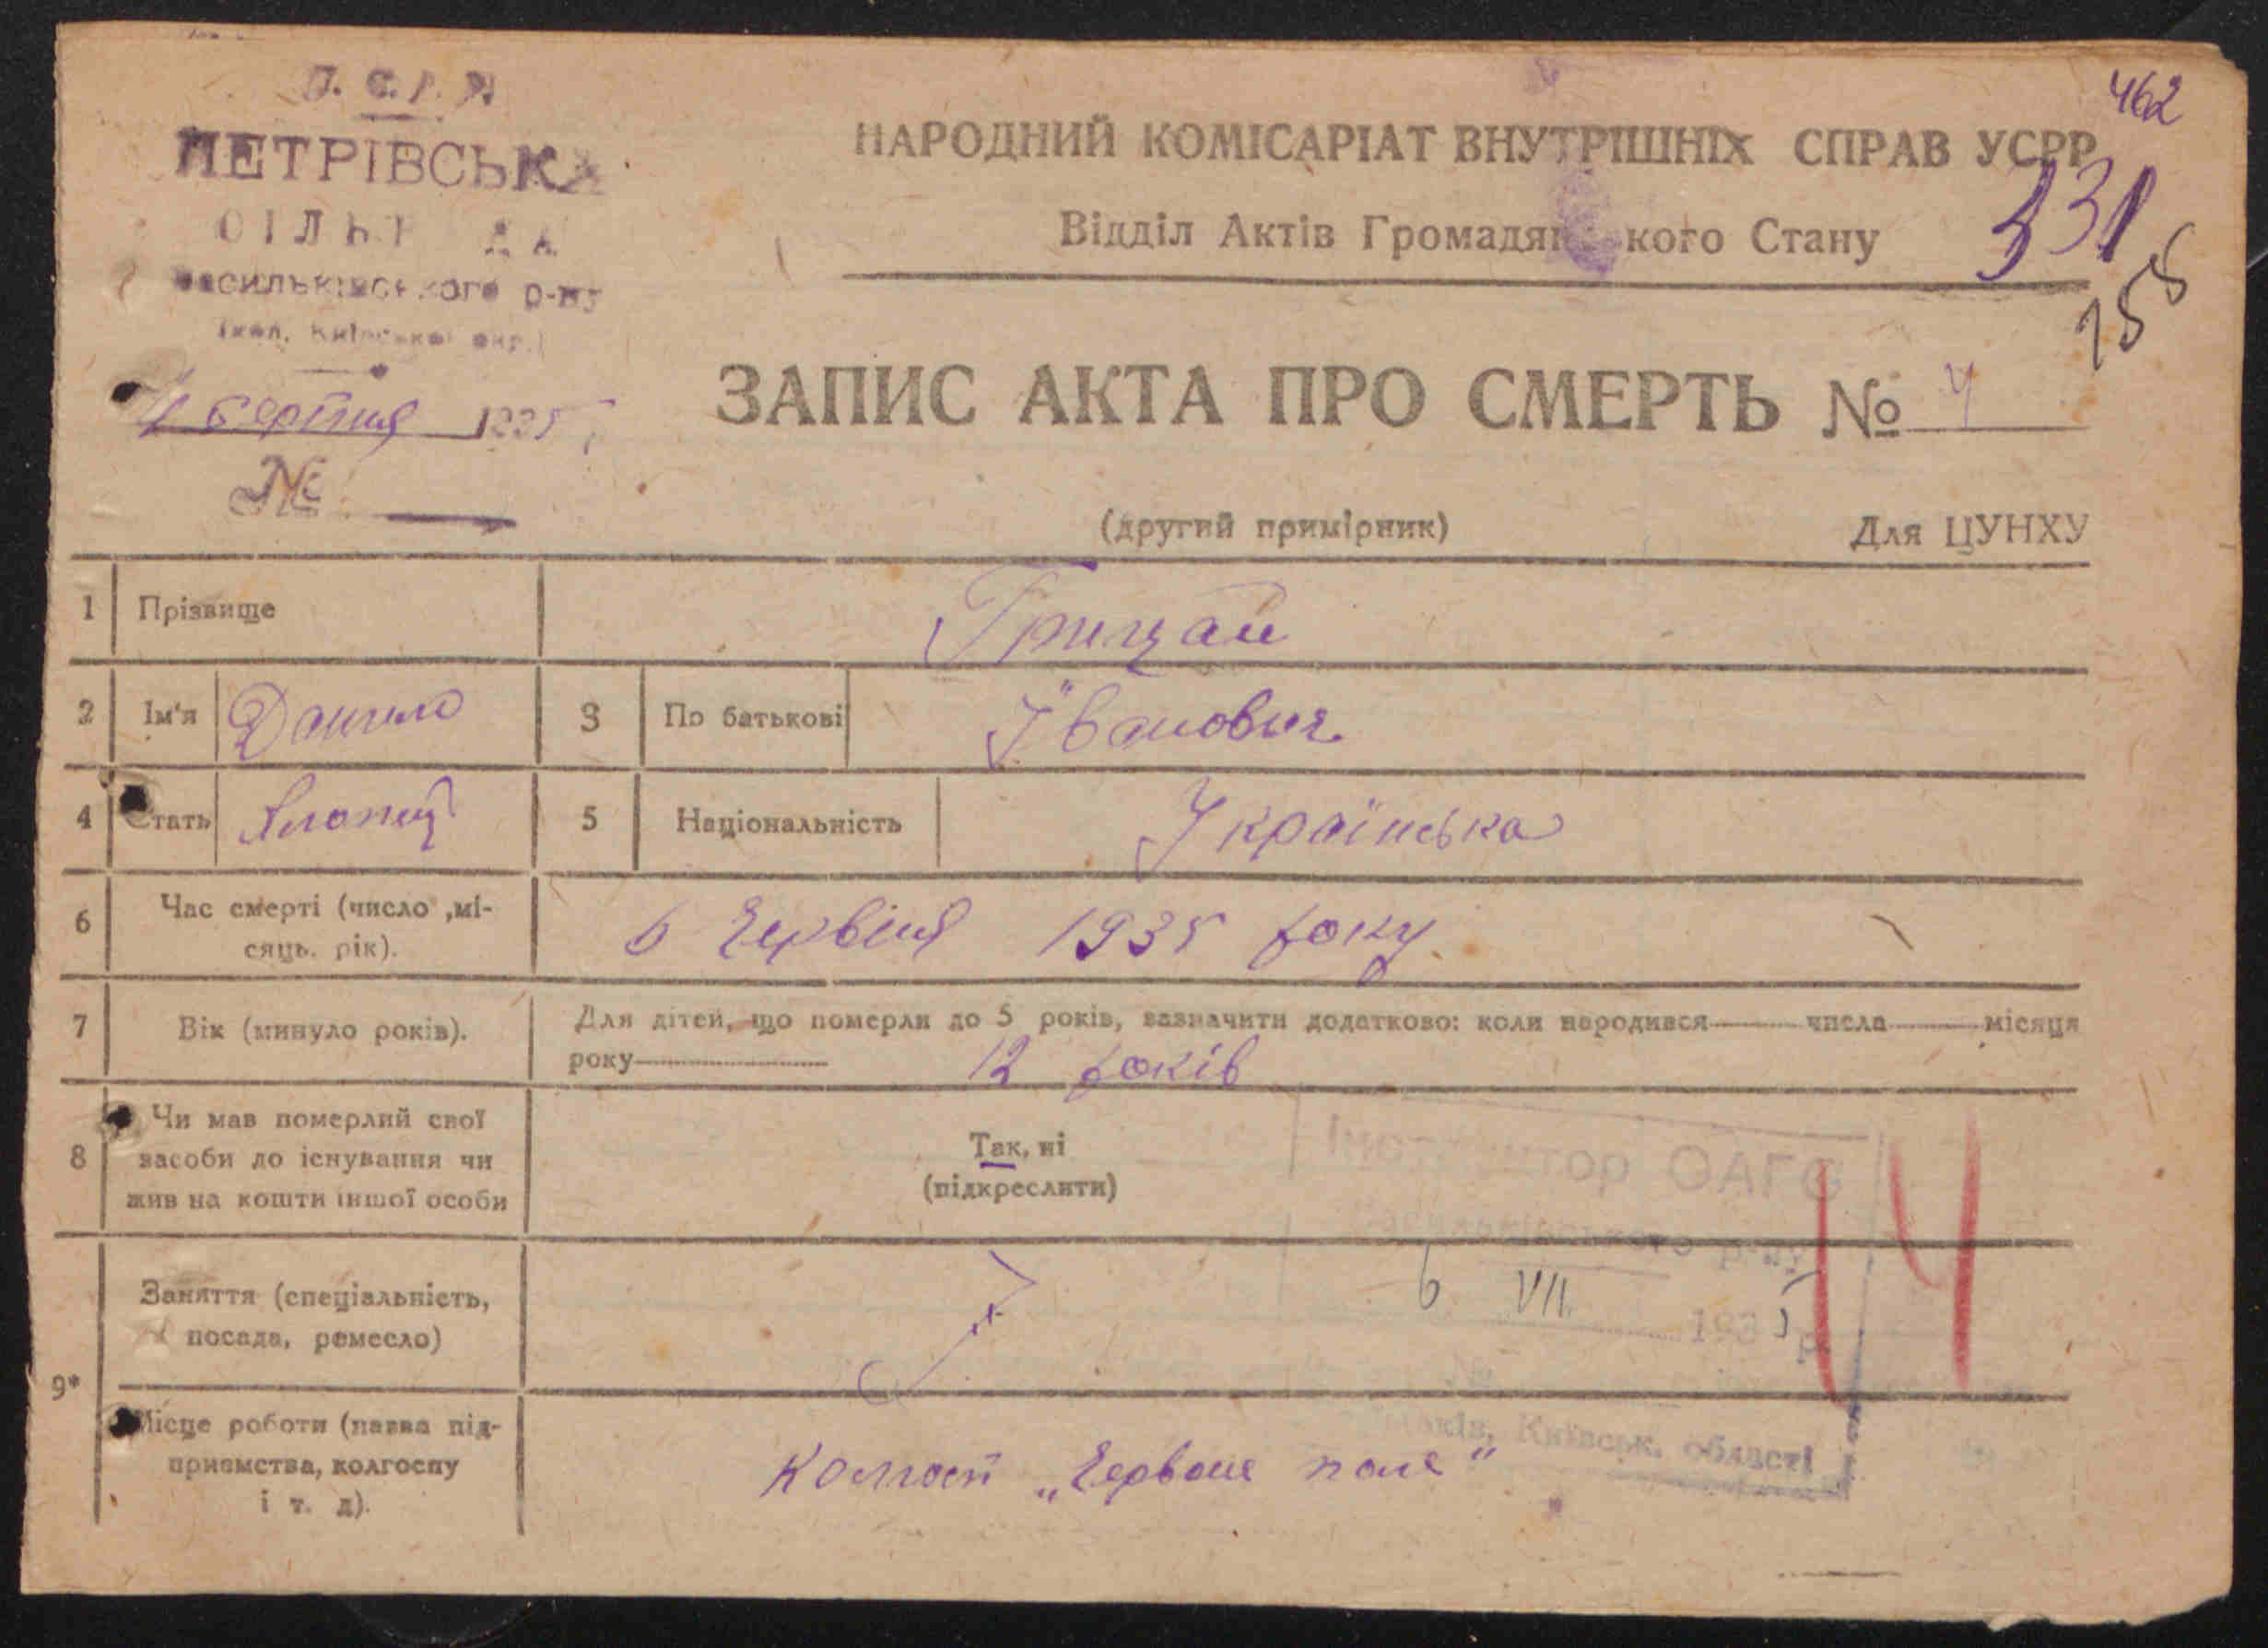 462
ПЕТРІВСЬКА
НАРОДНИЙ КОМІСАРІАТ ВНУТРІШНІХ СПРАВ УСРР
331
Відділ Актів Громадянського Стану
Васильківського р-ну
155
серпня 1935
ЗАПИС АКТА ПРО СМЕРТЬ № 4
№
(другий примірник) Для ЦУНХУ
1 Прізвище Грицай
2 Ім'я Данило 3 По батькові Іванович
4 Стать Хлопець 5 Національність Українська
6 Час смерті (число ,мі-
сяць. рік).
6 Червня 1935 року.
7 Вік (минуло років).
Для дітей, що померли до 5 років, зазначити додатково: коли народився числа місяця
року 12 років
8 Чи мав померлий свої
засоби до існування чи
жив на кошти іншої особи
Так, ні
(підкреслити)
Інструктор ОАГС
Васильківського р-ну
6 VII 1935 р.
Київськ. області
14
9* Заняття (спеціальність,
посада, ремесло)
Місце роботи (назва під-
приємства, колгоспу
і т. д).
Колгосп „Червоне поле"